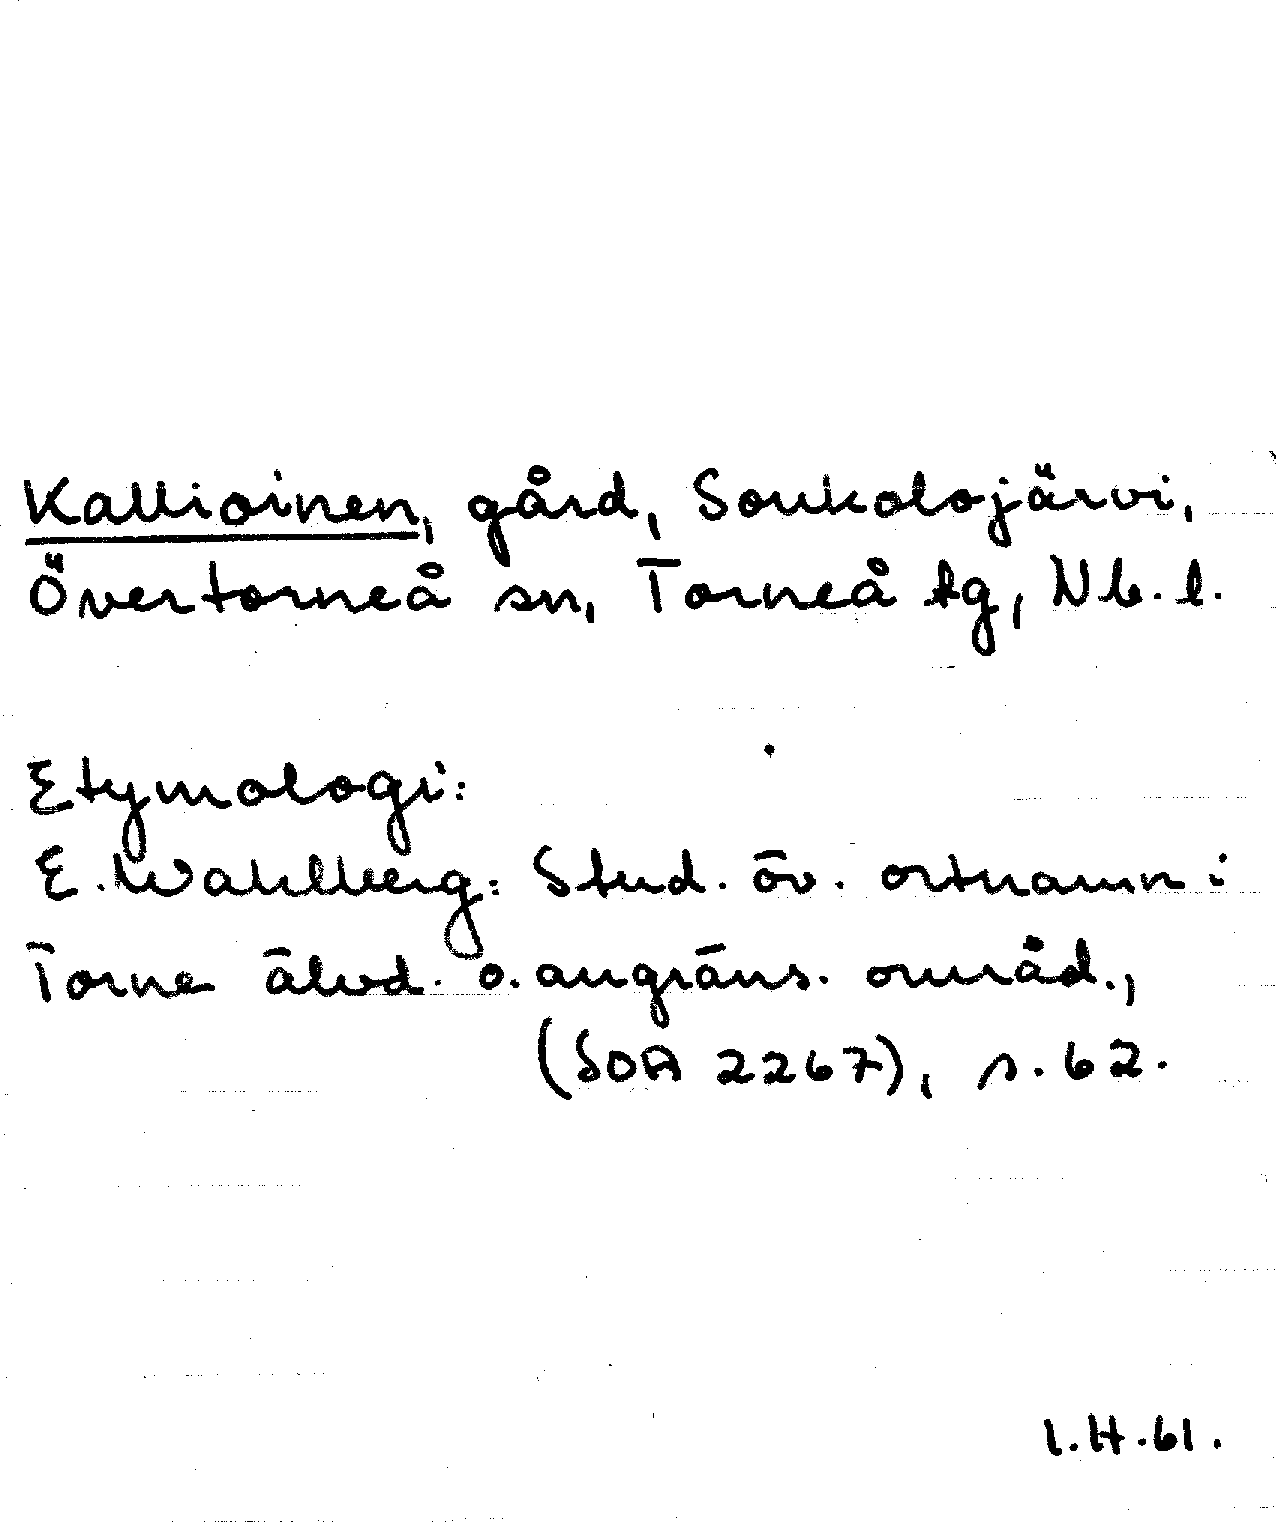 Kallioinen, gård, Soukolojärvi,
Övertorneå sn, Torneå tg, Nb. l.
Etymologi:
E. Wahlberg: Stud. öv. ortnamn i
Torne älvd. o. angräns. områd.,
(SOA 2267), s. 62.
I.H.61.